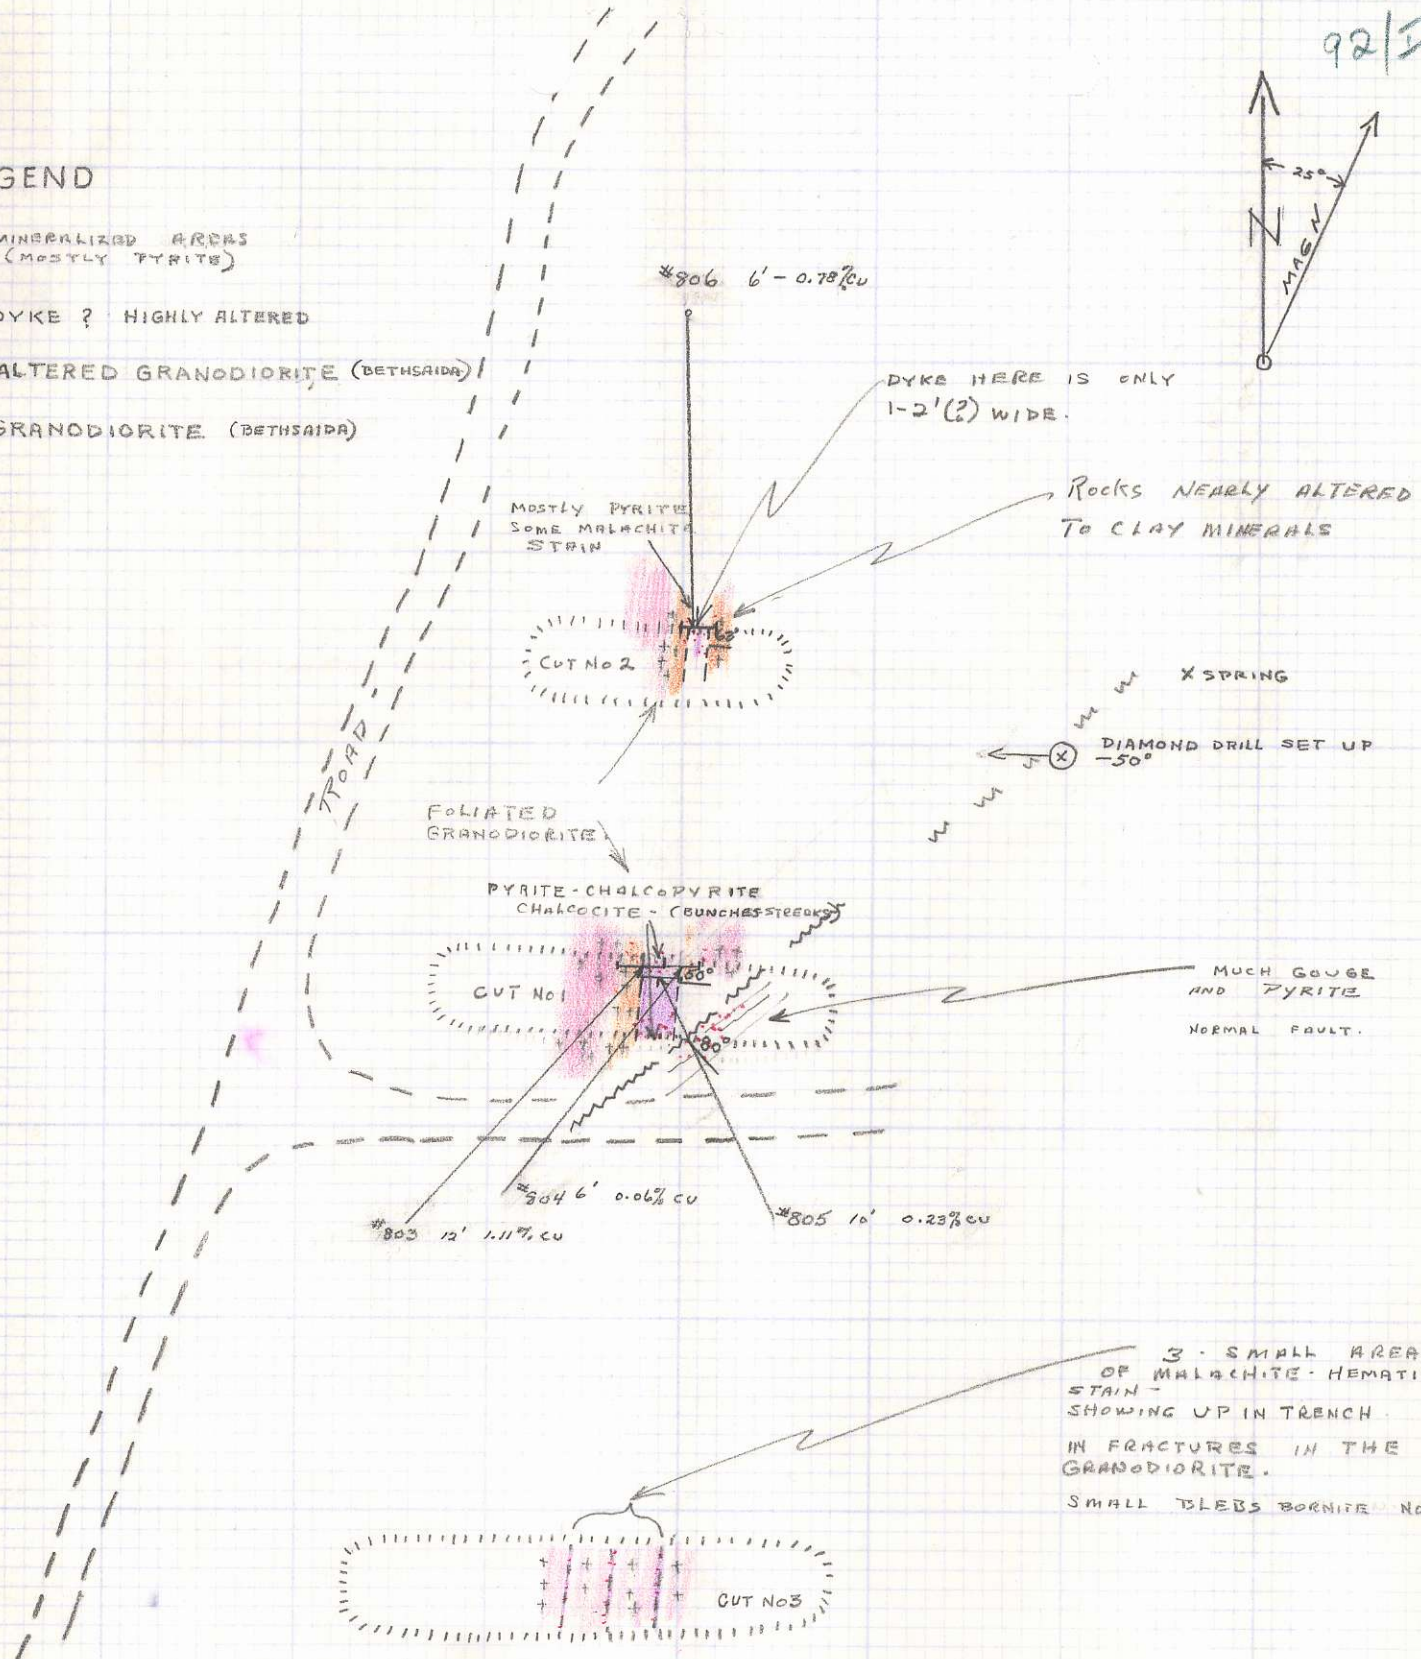 92/I
GEND
MINERALIZED AREAS
(MOSTLY PYRITE)
DYKE ? HIGHLY ALTERED
ALTERED GRANODIORITE (BETHSAIDA)
GRANODIORITE (BETHSAIDA)
25°
N
MAG N
#806 6' - 0.78% CU
DYKE HERE IS ONLY
1-2'(?) WIDE.
Rocks NEARLY ALTERED
TO CLAY MINERALS
MOSTLY PYRITE
SOME MALACHITE
STAIN
CUT No 2
X SPRING
DIAMOND DRILL SET UP
-50°
ROAD
FOLIATED
GRANODIORITE
PYRITE - CHALCOPYRITE
CHALCOCITE - (BUNCHES-STREAKS)
CUT No 1
60°
80°
MUCH GOUGE
AND PYRITE
NORMAL FAULT.
#804 6' 0.06% CU
#803 12' 1.11% CU
#805 10' 0.23% CU
3 - SMALL AREA
OF MALACHITE - HEMATI
STAIN -
SHOWING UP IN TRENCH.
IN FRACTURES IN THE
GRANODIORITE.
SMALL BLEBS BORNITE NO
CUT No3